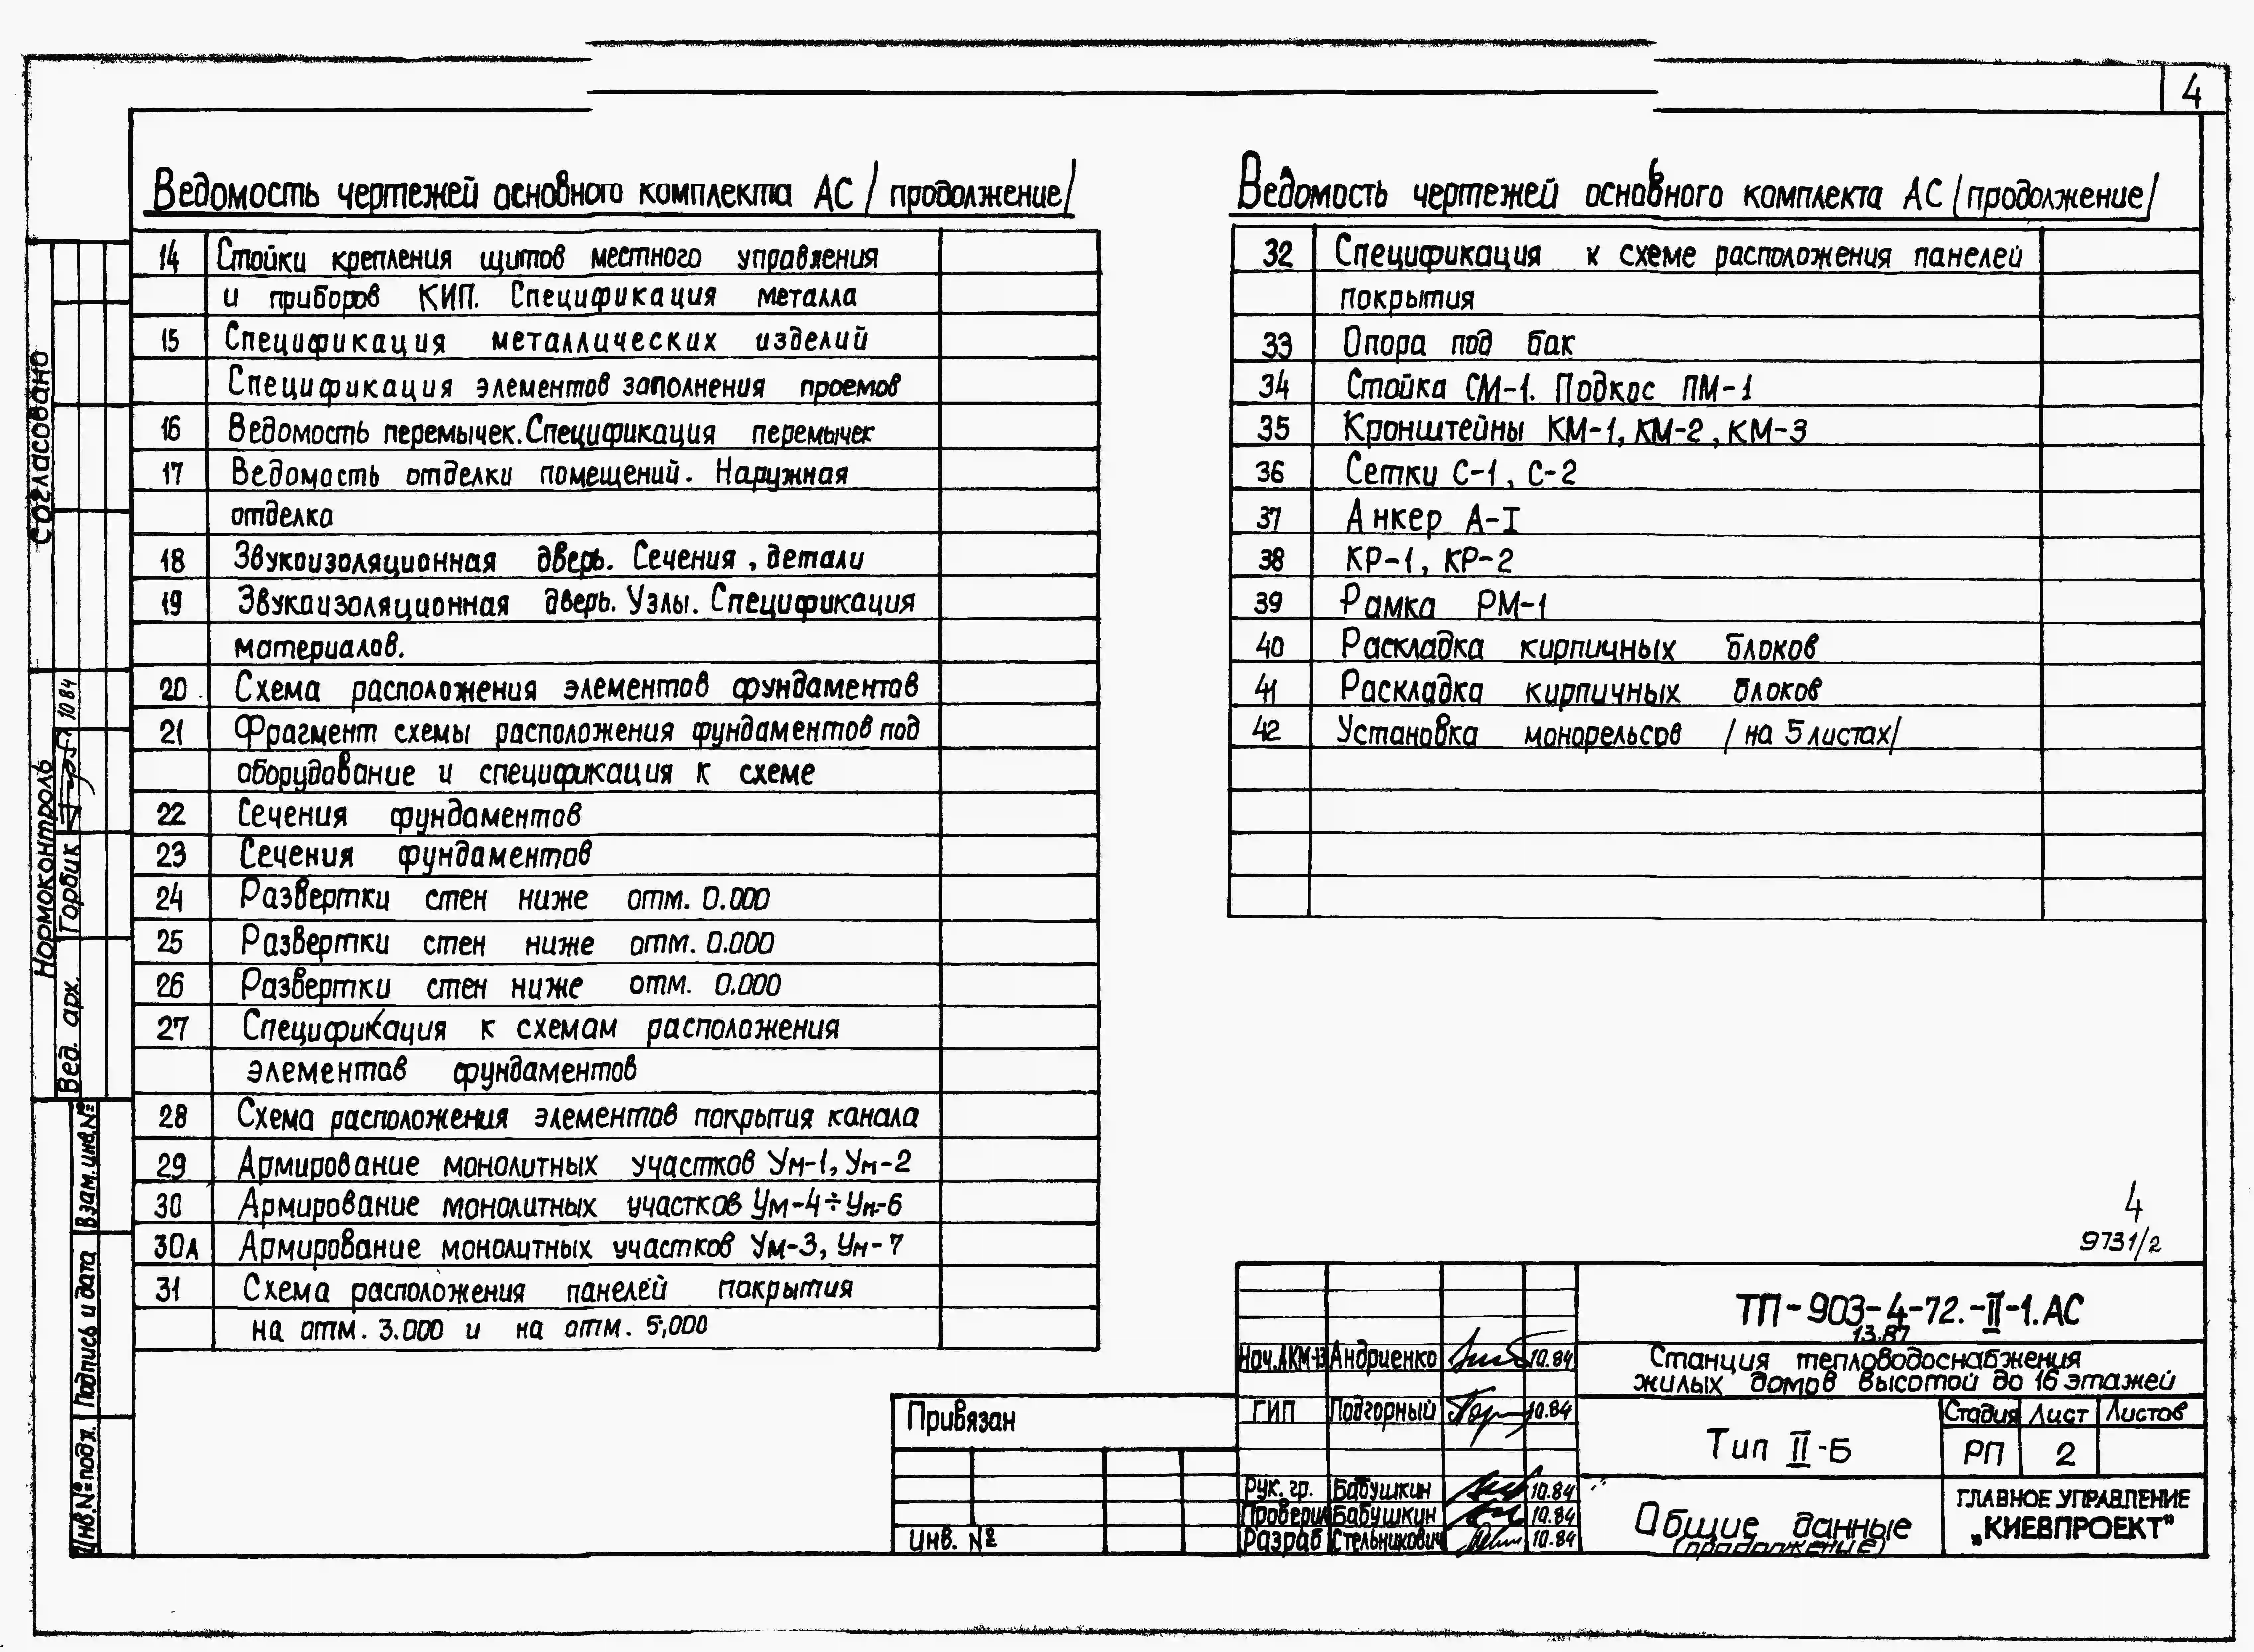 4
Ведомость чертежей основного комплекта АС /продолжение/
14 Стойки крепления щитов местного управления
и приборов КИП. Спецификация металла
15 Спецификация металлических изделий
Спецификация элементов заполнения проемов
16 Ведомость перемычек. Спецификация перемычек
17 Ведомость отделки помещений. Наружная
отделка
18 Звукоизоляционная дверь. Сечения, детали
19 Звукоизоляционная дверь. Узлы. Спецификация
материалов.
20 Схема расположения элементов фундаментов
21 Фрагмент схемы расположения фундаментов под
оборудование и спецификация к схеме
22 Сечения фундаментов
23 Сечения фундаментов
24 Развертки стен ниже отм. 0.000
25 Развертки стен ниже отм. 0.000
26 Развертки стен ниже отм. 0.000
27 Спецификация к схемам расположения
элементов фундаментов
28 Схема расположения элементов покрытия канала
29 Армирование монолитных участков Ум-1, Ум-2
30 Армирование монолитных участков Ум-4÷Ум-6
30А Армирование монолитных участков Ум-3, Ум-7
31 Схема расположения панелей покрытия
на отм. 3.000 и на отм. 5,000
Ведомость чертежей основного комплекта АС /продолжение/
32 Спецификация к схеме расположения панелей
покрытия
33 Опора под бак
34 Стойка СМ-1. Подкос ПМ-1
35 Кронштейны КМ-1, КМ-2, КМ-3
36 Сетки С-1, С-2
37 Анкер А-I
38 КР-1, КР-2
39 Рамка РМ-1
40 Раскладка кирпичных блоков
41 Раскладка кирпичных блоков
42 Установка монорельсов /на 5 листах/
4
9731/2
ТП-903-4-72.-II-1.АС
13.87
Станция тепловодоснабжения
жилых домов высотой до 16 этажей
Нач.АКМ-13 Андриенко 10.84
ГИП Подгорный 10.84
Рук. гр. Бабушкин 10.84
Проверил Бабушкин 10.84
Разраб Стельникович 10.84
Тип II-Б
Стадия Лист Листов
РП 2
Общие данные
(продолжение)
ГЛАВНОЕ УПРАВЛЕНИЕ
„КИЕВПРОЕКТ"
Привязан
Инв. №
Согласовано
Нормоконтроль
Вед. арх. Горбик 10 84
Взам.инв.№
Подпись и дата
Инв.№ подл.